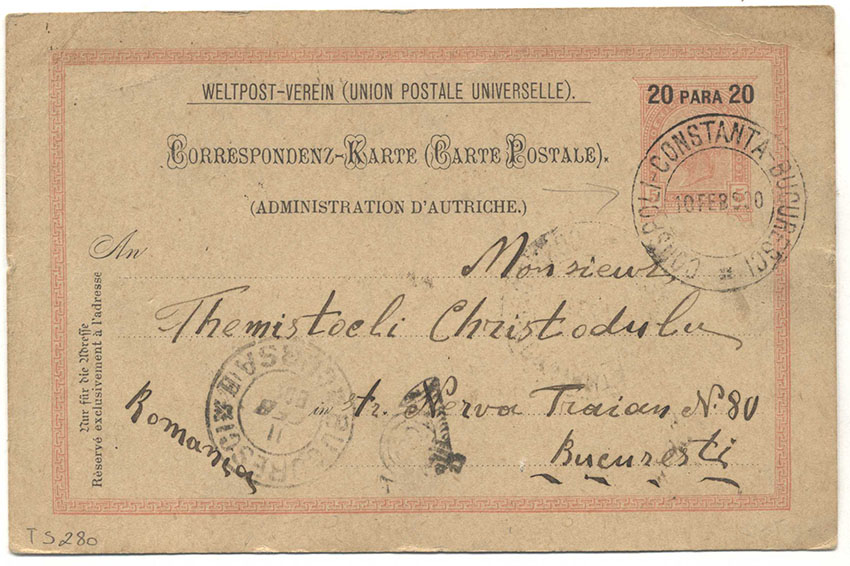 WELTPOST-VEREIN (UNION POSTALE UNIVERSELLE).
20 PARA 20
CORRESPONDENZ-KARTE (CARTE POSTALE).
(ADMINISTRATION D'AUTRICHE.)
CONSPOLI-CONSTANTA-BUCURESCI
10 FEB 900
An
Monsieur
Themistocli Christodulu
in str. Nerva Traian N. 80
Bucuresti
Romania
Nur für die Adresse
Réservé exclusivement à l'adresse
BUCURESCI
11 FEB
TS 280